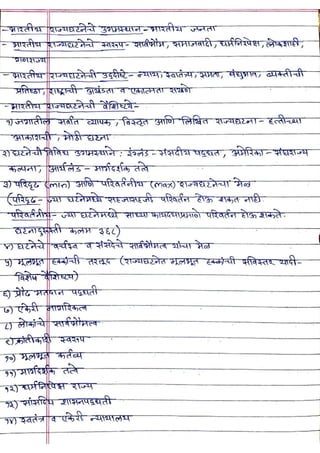 - भारतीय राज्यघटनेचे उगमस्थान - भारतीय जनता
- भारतीय राज्यघटनेचे स्वरूप - सार्वभौम, समाजवादी, धर्मनिरपेक्ष, लोकशाही,
गणराज्य
- भारतीय राज्यघटनेची उद्दिष्टे - न्याय, स्वातंत्र्य, समता, बंधुभाव, व्यक्तीची
प्रतिष्ठा, राष्ट्राची अखंडता व एकात्मता राखणे
- भारतीय राज्यघटनेची वैशिष्ट्ये -
१) जगातील सर्वात व्यापक, विस्तृत आणि लिखित राज्यघटना - हत्तीच्या
आकाराची, मोठी घटना
२) घटनेची विविध उगमस्थाने : इंग्लंड - संसदीय पद्धत, अमेरिका - संघराज्य
कल्पना, आयर्लंड - मार्गदर्शक तत्वे
३) परिदृढ (min) आणि परिवर्तनीय (max) राज्यघटनेचा मेळ
(परिदृढ - ज्या घटनेमध्ये सहजासहजी परिवर्तन होऊ शकत नाही
परिवर्तनीय - ज्या घटनेमध्ये साध्या कायद्याप्रमाणे परिवर्तन होऊ शकते
घटनादुरुस्ती कलम ३६८)
४) घटनेचे वर्चस्व व संसदेचे सार्वभौमत्व यांचा मेळ
५) मूलभूत हक्कांची तरतूद (राज्यघटनेत मूलभूत हक्कांची सविस्तर यादी -
विशेष वैशिष्ट्य)
६) प्रौढ मतदान पद्धती
७) एकेरी नागरिकत्व
८) लोकांचे सार्वभौमत्व
९) क्रांतीकारी स्वरूप
१०) मूलभूत कर्तव्य
११) मार्गदर्शक तत्वे
१२) धर्मनिरपेक्ष राज्य
१३) सांसदिय शासनपद्धती
१४) स्वतंत्र व एकेरी न्यायालय